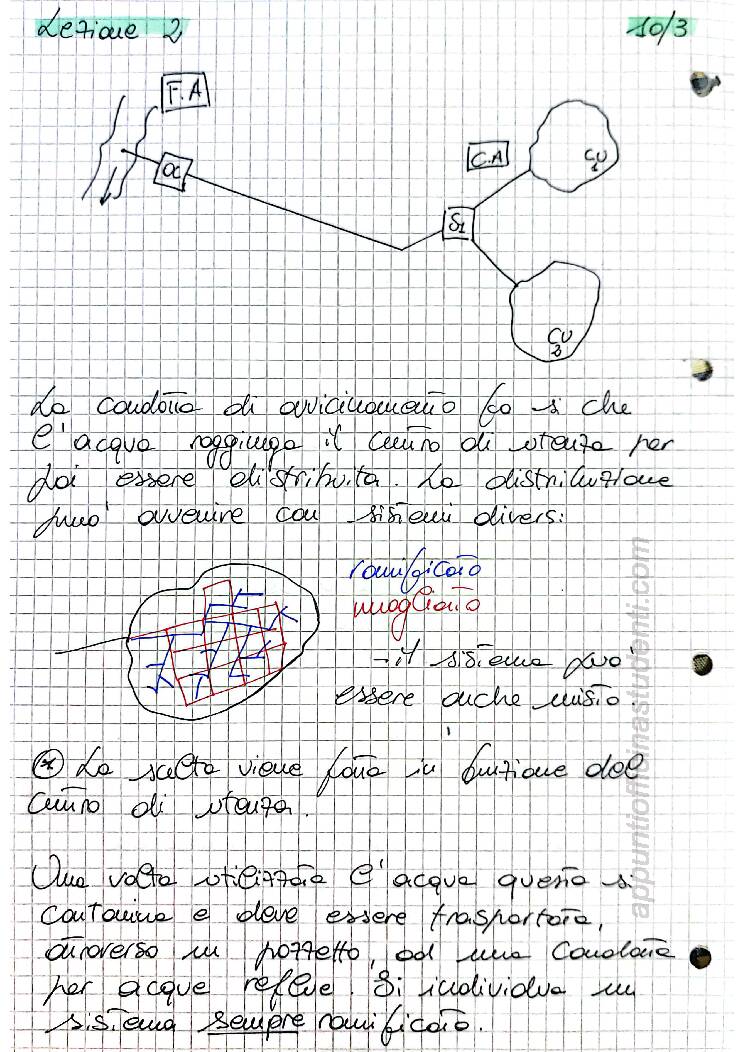 Lezione 2
10/3
F.A
OC
C.A
CU
1
S1
CU
2
La condotta di avvicinamento fa sì che
l'acqua raggiunga il centro di utenza per
poi essere distribuita. La distribuzione
può avvenire con sistemi diversi:
ramificato
magliato
→ il sistema può
essere anche misto.
* La scelta viene fatta in funzione del
centro di utenza.
Una volta utilizzata l'acqua questa si
contamina e deve essere trasportata,
attraverso un pozzetto, ad una condotta
per acque reflue. Si individua un
sistema sempre ramificato.
appuntiofficinastudenti.com